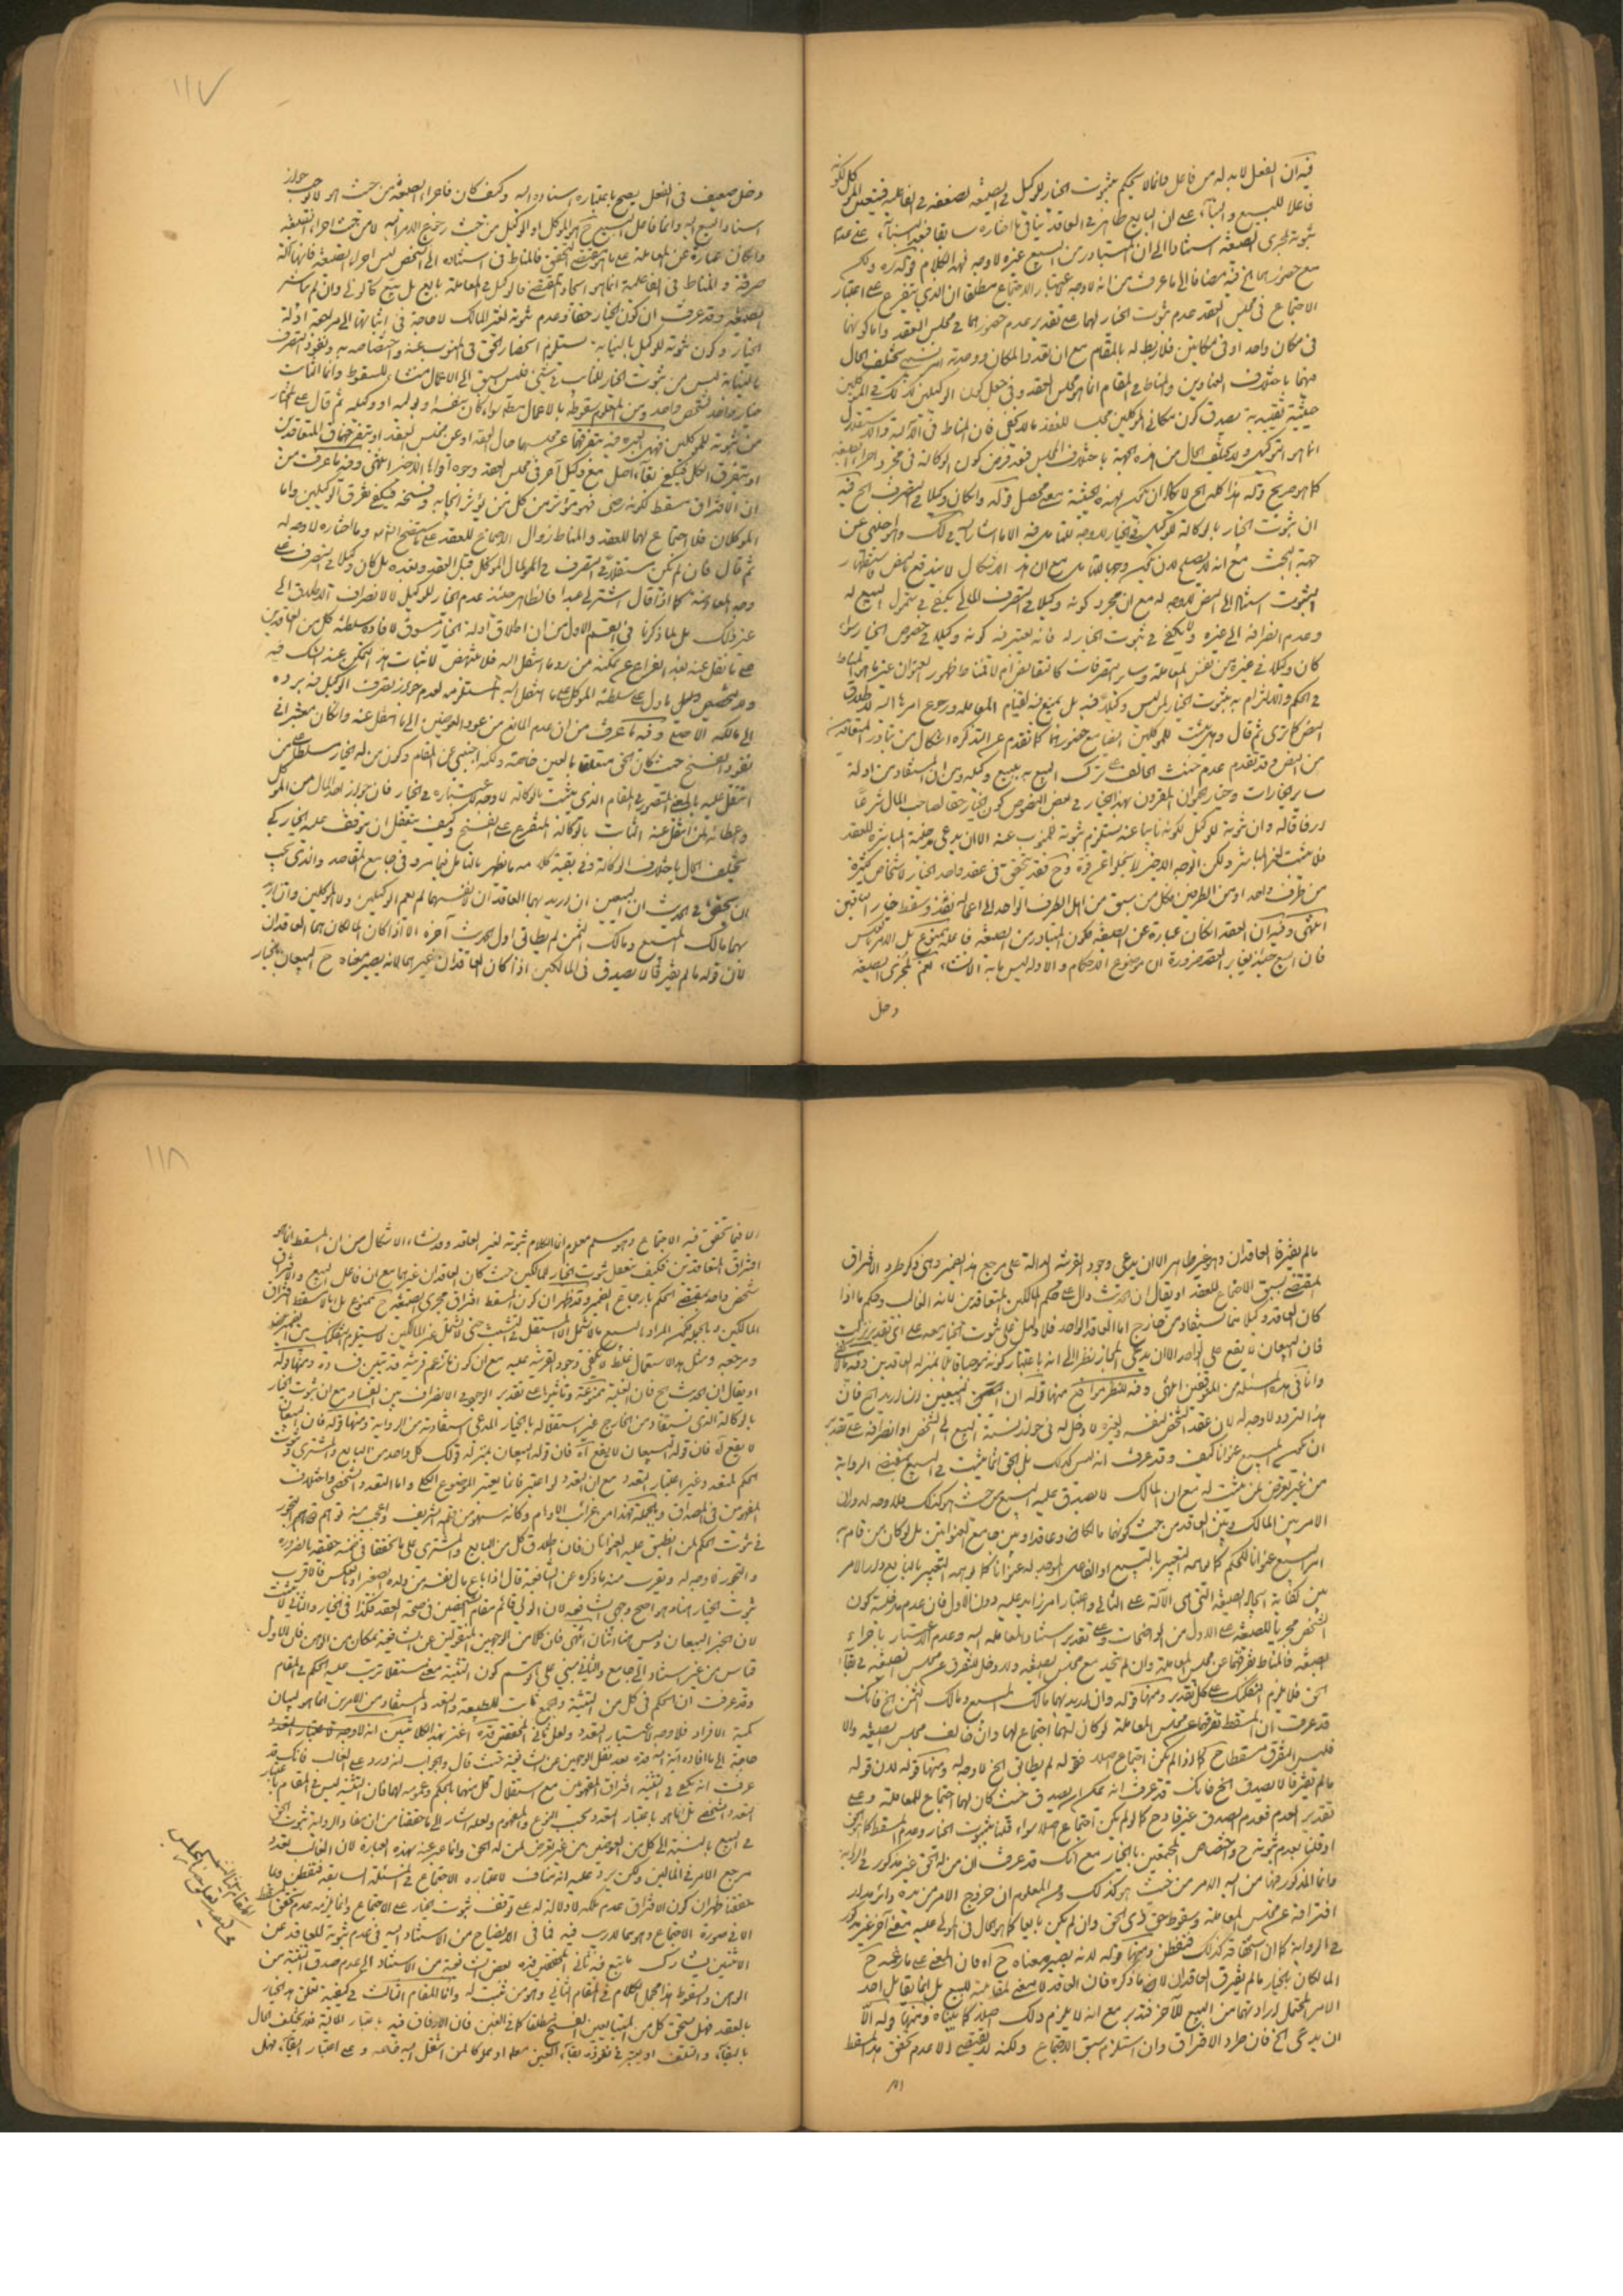 فيه ان الفعل لا بد له من فاعل وانما لا يحكم بثبوت الخيار للوكيل في الصيغه لضعفه في الفاعلية فيتعين الموكل لكونه
فاعلا للبيع والبناء على ان البايع ظاهر في العاقد ينافي ما اختاره سابقا فيه بناء على عدم
ثبوته لمجرى الصيغه استنادا الى ان المتبادر من البيع غيره لا وجه لهذا الكلام قوله ره ولكن
مع حضورهما الخ فيه مضافا الى ما عرفت من انه لا وجه لاعتبار الاجتماع مطلقا ان الذي يتفرع على اعتبار
الاجتماع في مجلس العقد عدم ثبوت الخيار لهما على تقدير عدم حضورهما في مجلس العقد واما كونهما
في مكان واحد او في مكانين فلا ربط له بالمقام مع ان تعدد المكان ووحدته امر نسبي يختلف الحال
فيهما باختلاف العناوين والمناط في المقام انما هو مجلس العقد وفي جعل الوكيلين
حيثية تقييدية يصدق كون مكاني الموكلين مجلسا للعقد ما لا يخفى فان المناط في الآلية والاستقلال
انما هو التوكيل ولا يختلف الحال من هذه الجهة باختلاف المجلس فتعد فرض كون الوكالة في مجرد اجراء الصيغه
كما هو صريح قوله هذا كله الخ لا مجال لان يكون لهذه الحيثية معنى محصل قوله وان كان وكيلا في التصرف الخ فيه
ان ثبوت الخيار بالوكالة للوكيل في الخيار لا وجه للتامل فيه الا ما اشار اليه في لك والاجنبي عن
جهة البحث مع انه لا يصلح لان يكون وجها للتامل مع ان هذا الاشكال لا يندفع
الثبوت استنادا الى النص لا وجه له مع ان مجرد كونه وكيلا في التصرف المالي يكفي في شمول البيع له
وعدم انصرافه الى غيره ولا يكفي في ثبوت الخيار له فانه يعتبر فيه كونه وكيلا في خصوص الخيار سواء
كان وكيلا في غيره من نفس المعاملة وساير التصرفات
في الحكم والالتزام به بثبوت الخيار لمن ليس وكيلا فيه بل يمنع فيه لقيام المعاملة ورجوع امرها اليه لاطلاق
النص كما ترى ثم قال وهل يثبت للموكلين ايضا مع حضورهما كما تقدم عن التذكره اشكال من تبادر المتعاقدين
من النص وقد تقدم عدم حنث الحالف على ترك البيع به ببيع وكيله ومن ان المستفاد من ادلة
ساير الخيارات وخيار الحيوان المقرون بهذا الخيار في بعض النصوص كون الخيار حقا لصاحب المال شرعا
ارفاقا له وان ثبوته للوكيل لكونه نايبا عنه يستلزم ثبوته للمنوب عنه الا ان يدعى مدخلية المباشرة للعقد
فلا يثبت لغير المباشر ولكن الوجه الاخير لا يخلو عن قوة وح فقد يتحقق في عقد واحد الخيار لاشخاص كثيرة
من طرف واحد او من الطرفين فكل من سبق من اهل الطرف الواحد الى اعماله نفذ وسقط خيار الباقين
انتهى وفيه ان العقد ان كان عبارة عن الصيغه فكون المتبادر من الصيغه فاعله ممنوع بل الامر بالعكس
فان البيع حينئذ يغاير العقد ضرورة ان موضوع الاحكام والادلة ليس ما به الانشاء نعم لمجرى الصيغه
دخل
١١٧
دخل ضعيف في الفعل يصح باعتباره اسناده اليه وكيف كان فاجراء الصيغه من حيث هو لا يوجب جواز
اسناد البيع اليه وانما فاعل البيع ح هو الموكل او الوكيل من حيث رجوع الامر اليه لا من حيث اجراء الصيغه
وان كان عبارة عن المعاملة على ما هو مقتضى التحقيق فالمناط في استناده الى الشخص ليس اجراء الصيغه فانها آلة
صرفة والمناط في الفاعلية انما هو ايجاد المقتضى فالوكيل في المعاملة بايع بل بيع كالولي وان لم يباشر
الصيغه وقد عرفت ان كون الخيار حقا وعدم ثبوته لغير المالك لا حاجة في اثباتها الى مراجعة ادلة
الخيار وكون ثبوته للوكيل بالنيابة يستلزم انحصار الحق في المنوب عنه واختصاصه به ونفوذ التصرف
بالنيابة ليس من ثبوت الخيار للنائب في شيء فليس السبق الى الاعمال منشاء للسقوط وانما الثابت
خيار واحد لشخص واحد ومن المعلوم سقوطه بالاعمال مطلقا سواء كان بنفسه او وليه او وكيله ثم قال على المختار
من ثبوته للموكلين فهل العبرة فيه بتفرقهما عن مجلسهما حال العقد او عن مجلس العقد او بتفرق المتعاقدين
او بتفرق الكل فيكفي بقاء اصيل مع وكيل آخر في مجلس العقد وجوه اقواها الاخير انتهى وفيه ما عرفت من
ان الافتراق مسقط لكونه رضى فهو مؤثر من كل من يؤثر ايجابه وفسخه فيكفي تفرق الوكيلين واما
الموكلان فلا اجتماع لهما للعقد والمناط زوال الاجتماع للعقد على ما ستتضح انشاء الله وما اختاره لا وجه له
ثم قال فان لم يكن مستقلا في التصرف في مال الموكل قبل العقد وبعده بل كان وكيلا في التصرف على
وجه المعاوضة كما اذا قال اشتر لي عبدا فالظاهر حينئذ عدم الخيار للوكيل لا لانصراف الاطلاق الى
غير ذلك بل لما ذكرنا في القسم الاول من ان اطلاق ادلة الخيار مسوق لافادة سلطنة كل من العاقدين
على ما نقل عنه بعد الفراغ عن تمكنه من رد ما انتقل اليه فلا تنهض لاثبات هذا التمكن عند الشك فيه
ولا لتخصيص ما دل على سلطنة الموكل على ما انتقل اليه المستلزمة لعدم جواز تصرف الوكيل فيه برده
الى مالكه الاصلي وفيه ما عرفت من ان عدم المانع من عود العوضين الى ما انتقل عنه وان كان معتبرا في
نفوذ الفسخ حيث كان الحق متعلقا بالعين خاصة ولكنه اجنبي عن المقام وكون من له الخيار سلطان على من
انتقل عليه بالمعنى المتصور في المقام الذي يثبت بالوكالة لا وجه لاعتباره في الخيار فان جواز اخذ المال من الموكل
واعطائه لمن انتقل عنه الثابت بالوكالة المتفرع على الفسخ وكيف يتعقل ان يتوقف عليه الخيار كي
يختلف الحال باختلاف الوكالة وفي بقية كلامه ما يظهر بالتامل فيما مر وفي جامع المقاصد والذي يجب
ان يحقق في الحديث ان البيعين ان اريد بهما العاقدان لانفسهما لم يعم الوكيلين ولا الموكلين وان اريد
بهما مالك المبيع ومالك الثمن لم يطابق اول الحديث آخره الا اذا كان المالكان هما العاقدان
لان قوله ما لم يفترقا لا يصدق في المالكين اذا كان العاقدان غيرهما لانه يصير معناه ح البيعان بالخيار
ما لم يفترقا العاقدان وهو غير ظاهر الا ان يدعى وجود القرينة الدالة على مرجع هذا الضمير وهي ذكر طرو الافتراق
المقتضي لسبق الاجتماع للعقد او يقال ان الحديث دال على حكم المالكين المتعاقدين لانه الغالب وحكم ما اذا
كان العاقد وكيلا مما يستفاد من خارج اما العاقد الواحد فلا دليل على ثبوت الخيار معه على اي تقدير نزلت
فان البيعان لا يقع على الواحد الا ان يدعى المجاز نظرا الى انه باعتبار كونه موجبا قابلا بمنزلة العاقدين
وانا في هذه المسئلة من المتوقفين انتهى وفيه للنظر مواقع منها قوله ان البيعين ان اريد الخ فان
هذا الترديد لا وجه له لان عقد الشخص لنفسه ولغيره لا دخل له في جواز نسبة البيع الى الشخص او انصرافه على تقدير
ان يكون البيع عنوانا كيف وقد عرفت انه ليس كذلك بل الحق انما يثبت في البيع بمقتضى الرواية
من غير تعرض لمن يثبت له مع ان المالك لا يصدق عليه البيع من حيث هو كذلك فلا وجه لدوران
الامر بين المالك وبين العاقد من حيث كونهما مالكا وعاقدا وبين جامع العنوانين بل لو كان من قام به
امر البيع عنوانا للحكم كما يوهمه التعبير بالبيع او الفاعل الموجد له عنوانا كما يوهمه التعبير بالبايع دار الامر
بين كفاية ايجاد الصيغه التي هي الآلة على الثاني واعتبار امر زايد عليه دون الاول فان عدم مدخلية كون
الشخص مجريا للصيغه على الاول من الواضحات وعلى تقدير استناد المعاملة اليه وعدم الاعتبار باجراء
الصيغه فالمناط تفرقهما عن مجلس المعاملة وان لم يتحد مع مجلس الصيغه ولا دخل للتفرق عن مجلس الصيغه في بقاء
الحق فلا يلزم التفكيك على كل تقدير ومنها قوله وان اريد بهما مالك المبيع ومالك الثمن الخ فانك
قد عرفت ان المسقط تفرقهما عن مجلس المعاملة لو كان لهما اجتماع لها وان خالف مجلس الصيغه والا
فليس التفرق مسقطا ح كما اذا لم يكن اجتماع اصلا فقوله لم يطابق الخ لا وجه له ومنها قوله لان قوله
ما لم يفترقا لا يصدق الخ فانك قد عرفت انه يمكن ان يصدق حيث كان لهما اجتماع للمعاملة وعلى
تقدير العدم فعدم الصدق غير قادح كما لو لم يكن اجتماع اصلا سواء قلنا بثبوت الخيار وعدم المسقط كما هو الحق
او قلنا بعدم ثبوته ح واختصاص المجتمعين بالخيار مع انك قد عرفت ان من له الحق غير مذكور في الرواية
وانما المذكور فيها من اليه الامر من حيث هو كذلك ومن المعلوم ان خروج الامر من يده وانما يدور
افتراقه عن مجلس المعاملة وسقوط حق ذي الحق وان لم يكن بايعا كما هو الحال في المولى عليه بمعنى آخر غير مذكور
في الرواية كما ان استحقاقه كذلك فتفطن ومنها قوله لانه يصير معناه ح آه فان المعنى على ما زعمه ح
المالكان بالخيار ما لم يفترق العاقدان لا ما ذكره فان العاقد لا معنى لمقابلته للبيع بل انما يقابل احد
الامر المحتمل ارادتهما من البيع للآخر فتدبر مع انه لا يلزم ذلك اصلا كما بيناه ومنها قوله الا
ان يدعى الخ فان طرو الافتراق وان استلزم سبق الاجتماع ولكنه لا يقتضي الا عدم تحقق هذا المسقط
الا
١١٨
الا فيما تحقق فيه الاجتماع وهو مسلم معلوم انما الكلام ثبوته لغير العاقد وقد نشاء الاشكال من ان المسقط انما هو
افتراق المتعاقدين فكيف يتعقل ثبوت الخيار للمالكين حيث كان العاقدان غيرهما مع ان فاعل البيع والافتراق
شخص واحد بمقتضى الحكم بارجاع الضمير وقد ظهر ان كون المسقط افتراق مجرى الصيغه ح ممنوع بل انما المسقط افتراق
المالكين وبالجملة فكون المراد بالبيع ما يشمل الآلة والمستقل في التشبث حتى لا يشمل غير المالكين لا يستلزم التفكيك بين الضمير
ومرجعه ومثل هذا الاستعمال غلط لا يكفي وجود القرينة عليه مع ان كون ما زعم قرينة قد تبين فساده ومنها قوله
او يقال ان الحديث الخ فان الغلبة ممنوعة وتاثيرها على تقدير الوجود في الانصراف بين الفساد مع ان ثبوت الخيار
بالوكالة الذي يستفاد من الخارج غير استقلاله بالخيار المدعى استفادته من الرواية ومنها قوله فان البيعان
لا يقع آه فان قوله البيعان لا يقع آه فان قوله البيعان بمنزلة قولك كل واحد من البايع والمشتري وثبوت
الحكم لمتعدد وغير اعتبار التعدد مع ان التعدد لو اعتبر فانما يعتبر الموضوع الكلي واما التعدد الشخصي واختلاف
المفهومين في المصداق وبالجملة فهذا من غرائب الاوهام وكانه سهو من قلمه الشريف واعجب منه توهم
في ثبوت الحكم لمن انطبق عليه العنوانان فان اطلاق كل من البايع والمشتري على ما تحققا في ضمنه حقيقة بالضرورة
والتجوز لا وجه له ويقرب منه ما ذكره عن الشافعية قال اذا باع مال نفسه من ولده الصغير او بالعكس فالاقرب
ثبوت الخيار هنا وهو اصح وجهي الشافعيه لان الولي قائم مقام الشخصين في صحة العقد فكذا في الخيار والثاني لا يثبت
لان الخبر البيعان وليس هنا اثنان انتهى فان كلا من الوجهين المنقولين عن الشافعية بمكان من الوهن فان الاول
قياس من غير استناد الى جامع والثاني مبني على توهم كون التثنية معنى مستقلا ترتب عليه الحكم في المقام
وقد عرفت ان الحكم في كل من التثنية والجمع ثابت للطبيعة والتعدد المستفاد من الامرين انما هو لبيان
كمية الافراد فلا وجه لاعتبار التعدد ولعل ثاني المحققين قده اغتر بهذا الكلام
حاجة الى ما افاده آية الله قده بعد نقل الوجهين عن الشافعية حيث قال والجواب انه ورد على الغالب فانك قد
عرفت انه يكفي في التثنية افتراق المفهومين مع استقلال كل منهما بالحكم وعمومه لهما فان التثنية ليس في المقام باعتبار
التعدد الشخصي بل انما هو باعتبار التعدد بحسب النوع والمفهوم ولعله اشار الى ما حققنا من ان مفاد الرواية ثبوت الحق
في البيع بالنسبة الى كل من العوضين من غير تعرض لمن له الحق وانما عبر عنه بهذه العبارة لان الغالب تعدد
مرجع الامر في المالين ولكن يرد عليه انه مناف لاعتباره الاجتماع في المسئلة السابقة فتفطن وبما
حققنا ظهر ان كون الافتراق عدم ملكة لا دلالة له على توقف ثبوت الخيار على الاجتماع وانما يلزمه عدم تحقق المسقط
الا في صورة الاجتماع وهو مما لا ريب فيه فما في الايضاح من الاستناد اليه في عدم ثبوته للعاقد عن
الاثنين يشارك ما تبع فيه ثاني المحققين قده بعض الشافعية من الاستناد الى عدم صدق التثنية من
الوهن والسقوط هذا مجمل الكلام في المقام الثاني وهو من يثبت له واما المقام الثالث في كيفية تعلق هذا الخيار
بالعقد فهل يستحق كل من المتبايعين الفسخ مطلقا كما في العين فان الارفاق فيه باعتبار المالية فلا يختلف الحال
بالبقاء والتلف او يعتبر في نفوذه بقاء العين مملوكا لمن انتقل اليه خاصة وعلى اعتبار البقاء فهل